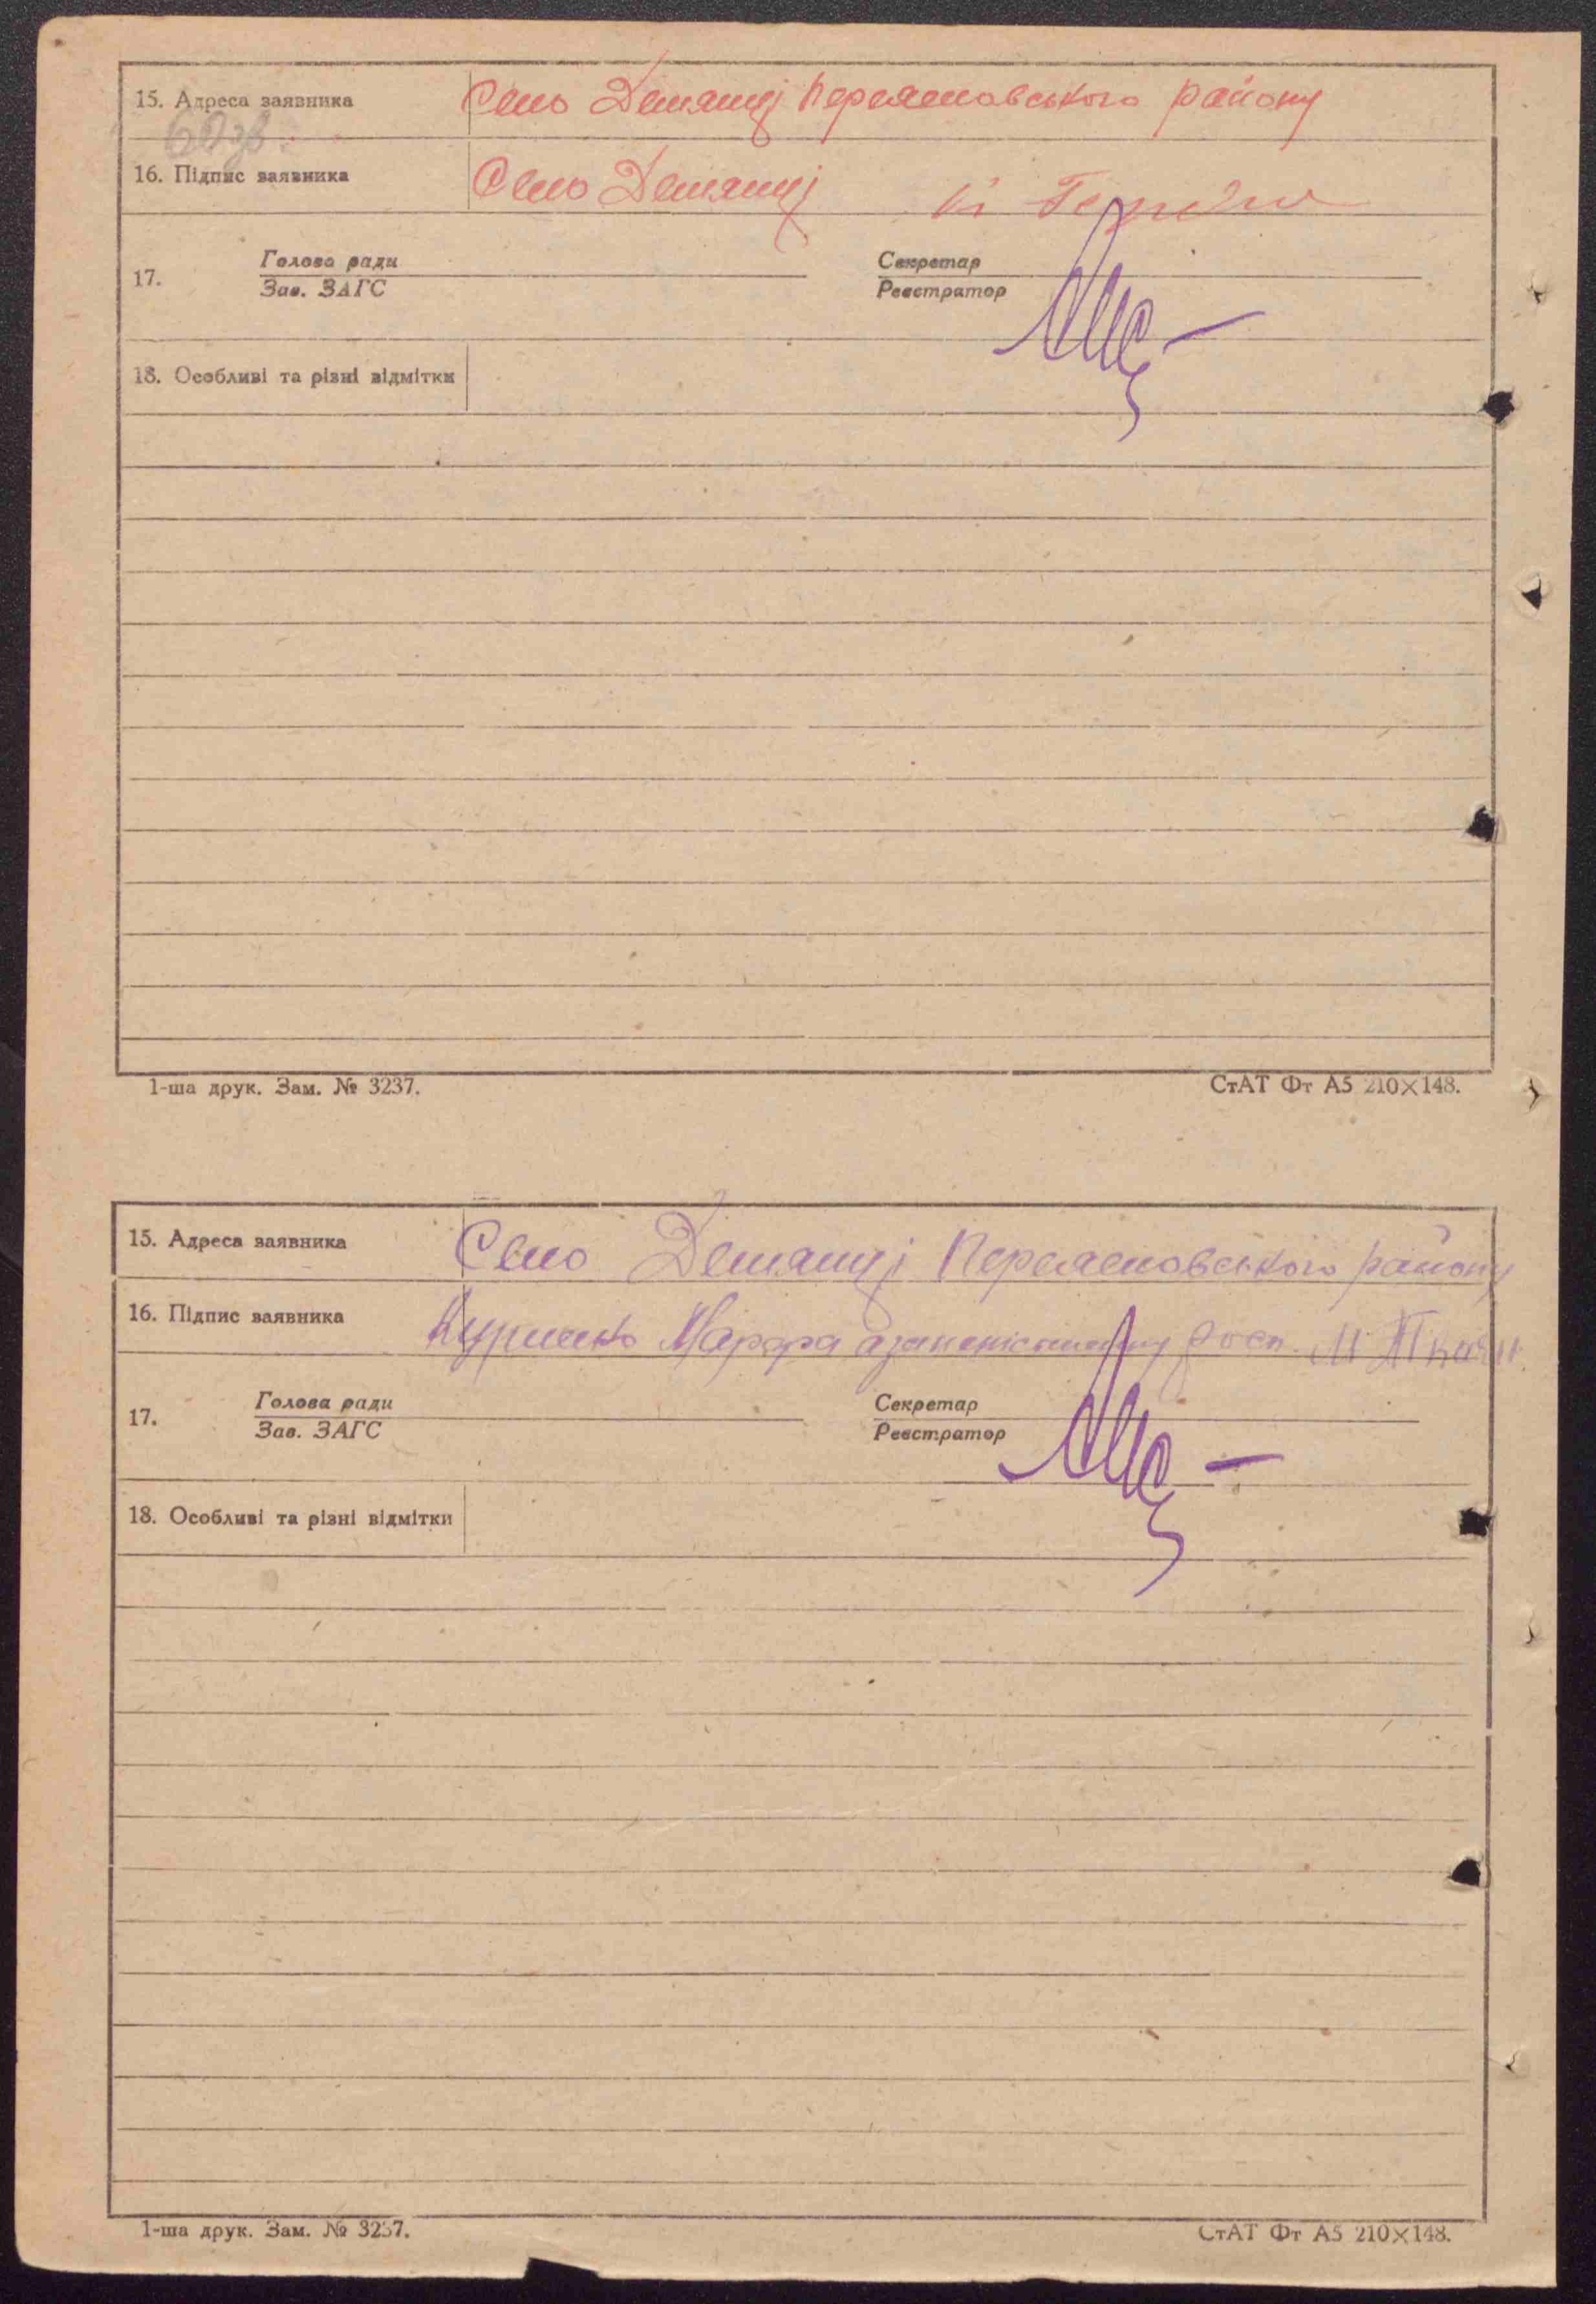 15. Адреса заявника Село Демянці Переяславського району
16. Підпис заявника Село Демянці
17. Голова ради Секретар
Зав. ЗАГС Реєстратор
18. Особливі та різні відмітки
1-ша друк. Зам. № 3237. СтАТ Фт А5 210×148.
15. Адреса заявника Село Демянці Переяславського району
16. Підпис заявника Марфа
17. Голова ради Секретар
Зав. ЗАГС Реєстратор
18. Особливі та різні відмітки
1-ша друк. Зам. № 3237. СтАТ Фт А5 210×148.